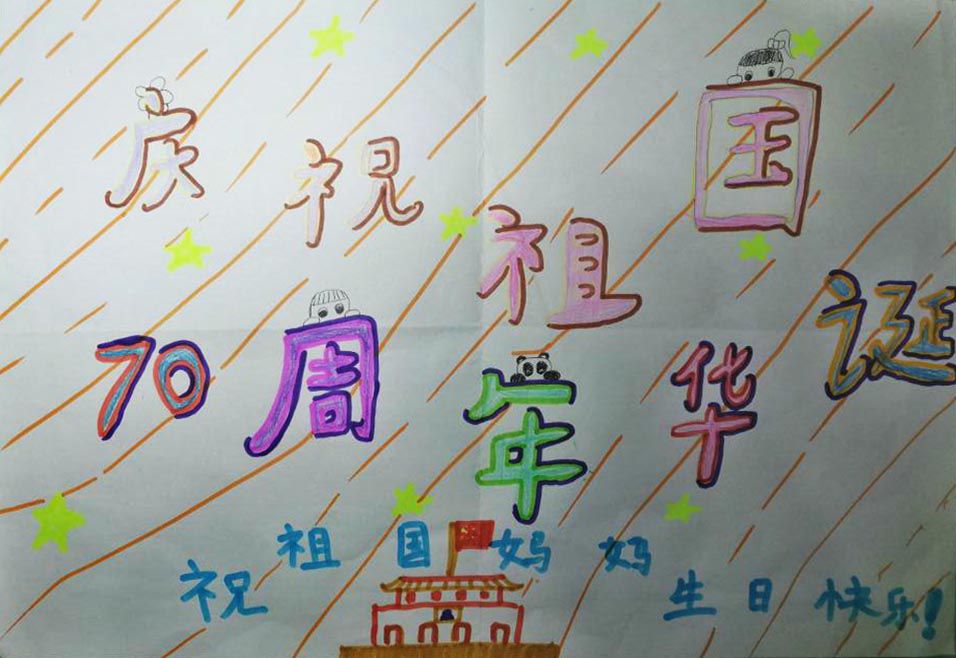 庆祝祖国
70周年华诞
祝祖国妈妈生日快乐!